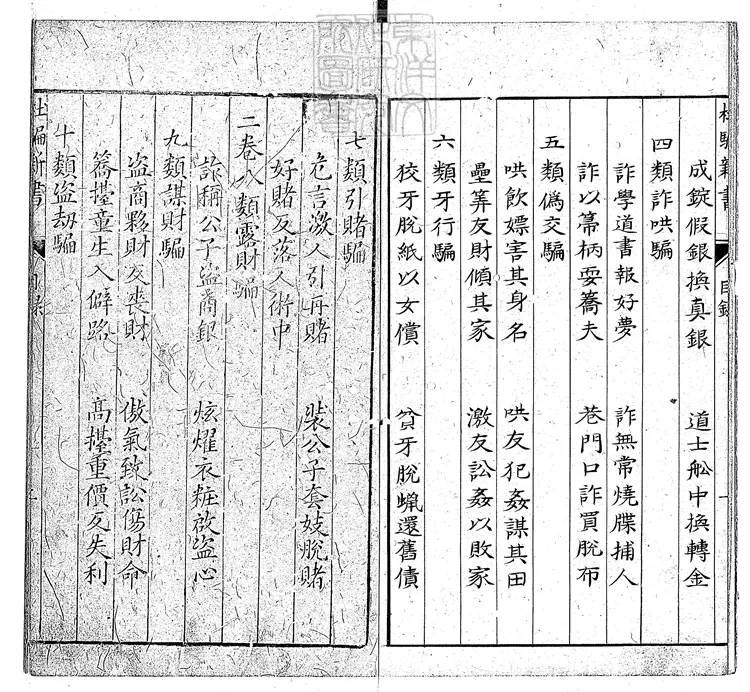 杜騙新書 目錄
成錠假銀換真銀 道士船中換轉金
四類詐哄騙
詐學道書報好夢 詐無常燒牒捕人
詐以帚柄耍轎夫 巷門口詐買脫布
五類僞交騙
哄飲嫖害其身名 哄友犯姦謀其田
壘算友財傾其家 激友訟姦以敗家
六類牙行騙
狡牙脫紙以女償 貧牙脫蠟還舊債
七類引賭騙
危言激人引再賭 裝公子套妓脫賭
好賭反落入術中
二卷八類露財騙
詐稱公子盜商銀 炫燿衣粧啟盜心
九類謀財騙
盜商夥財反喪財 傲氣致訟傷財命
轎擡童生入僻路 高擡重價反失利
十類盜劫騙
杜騙新書 目錄